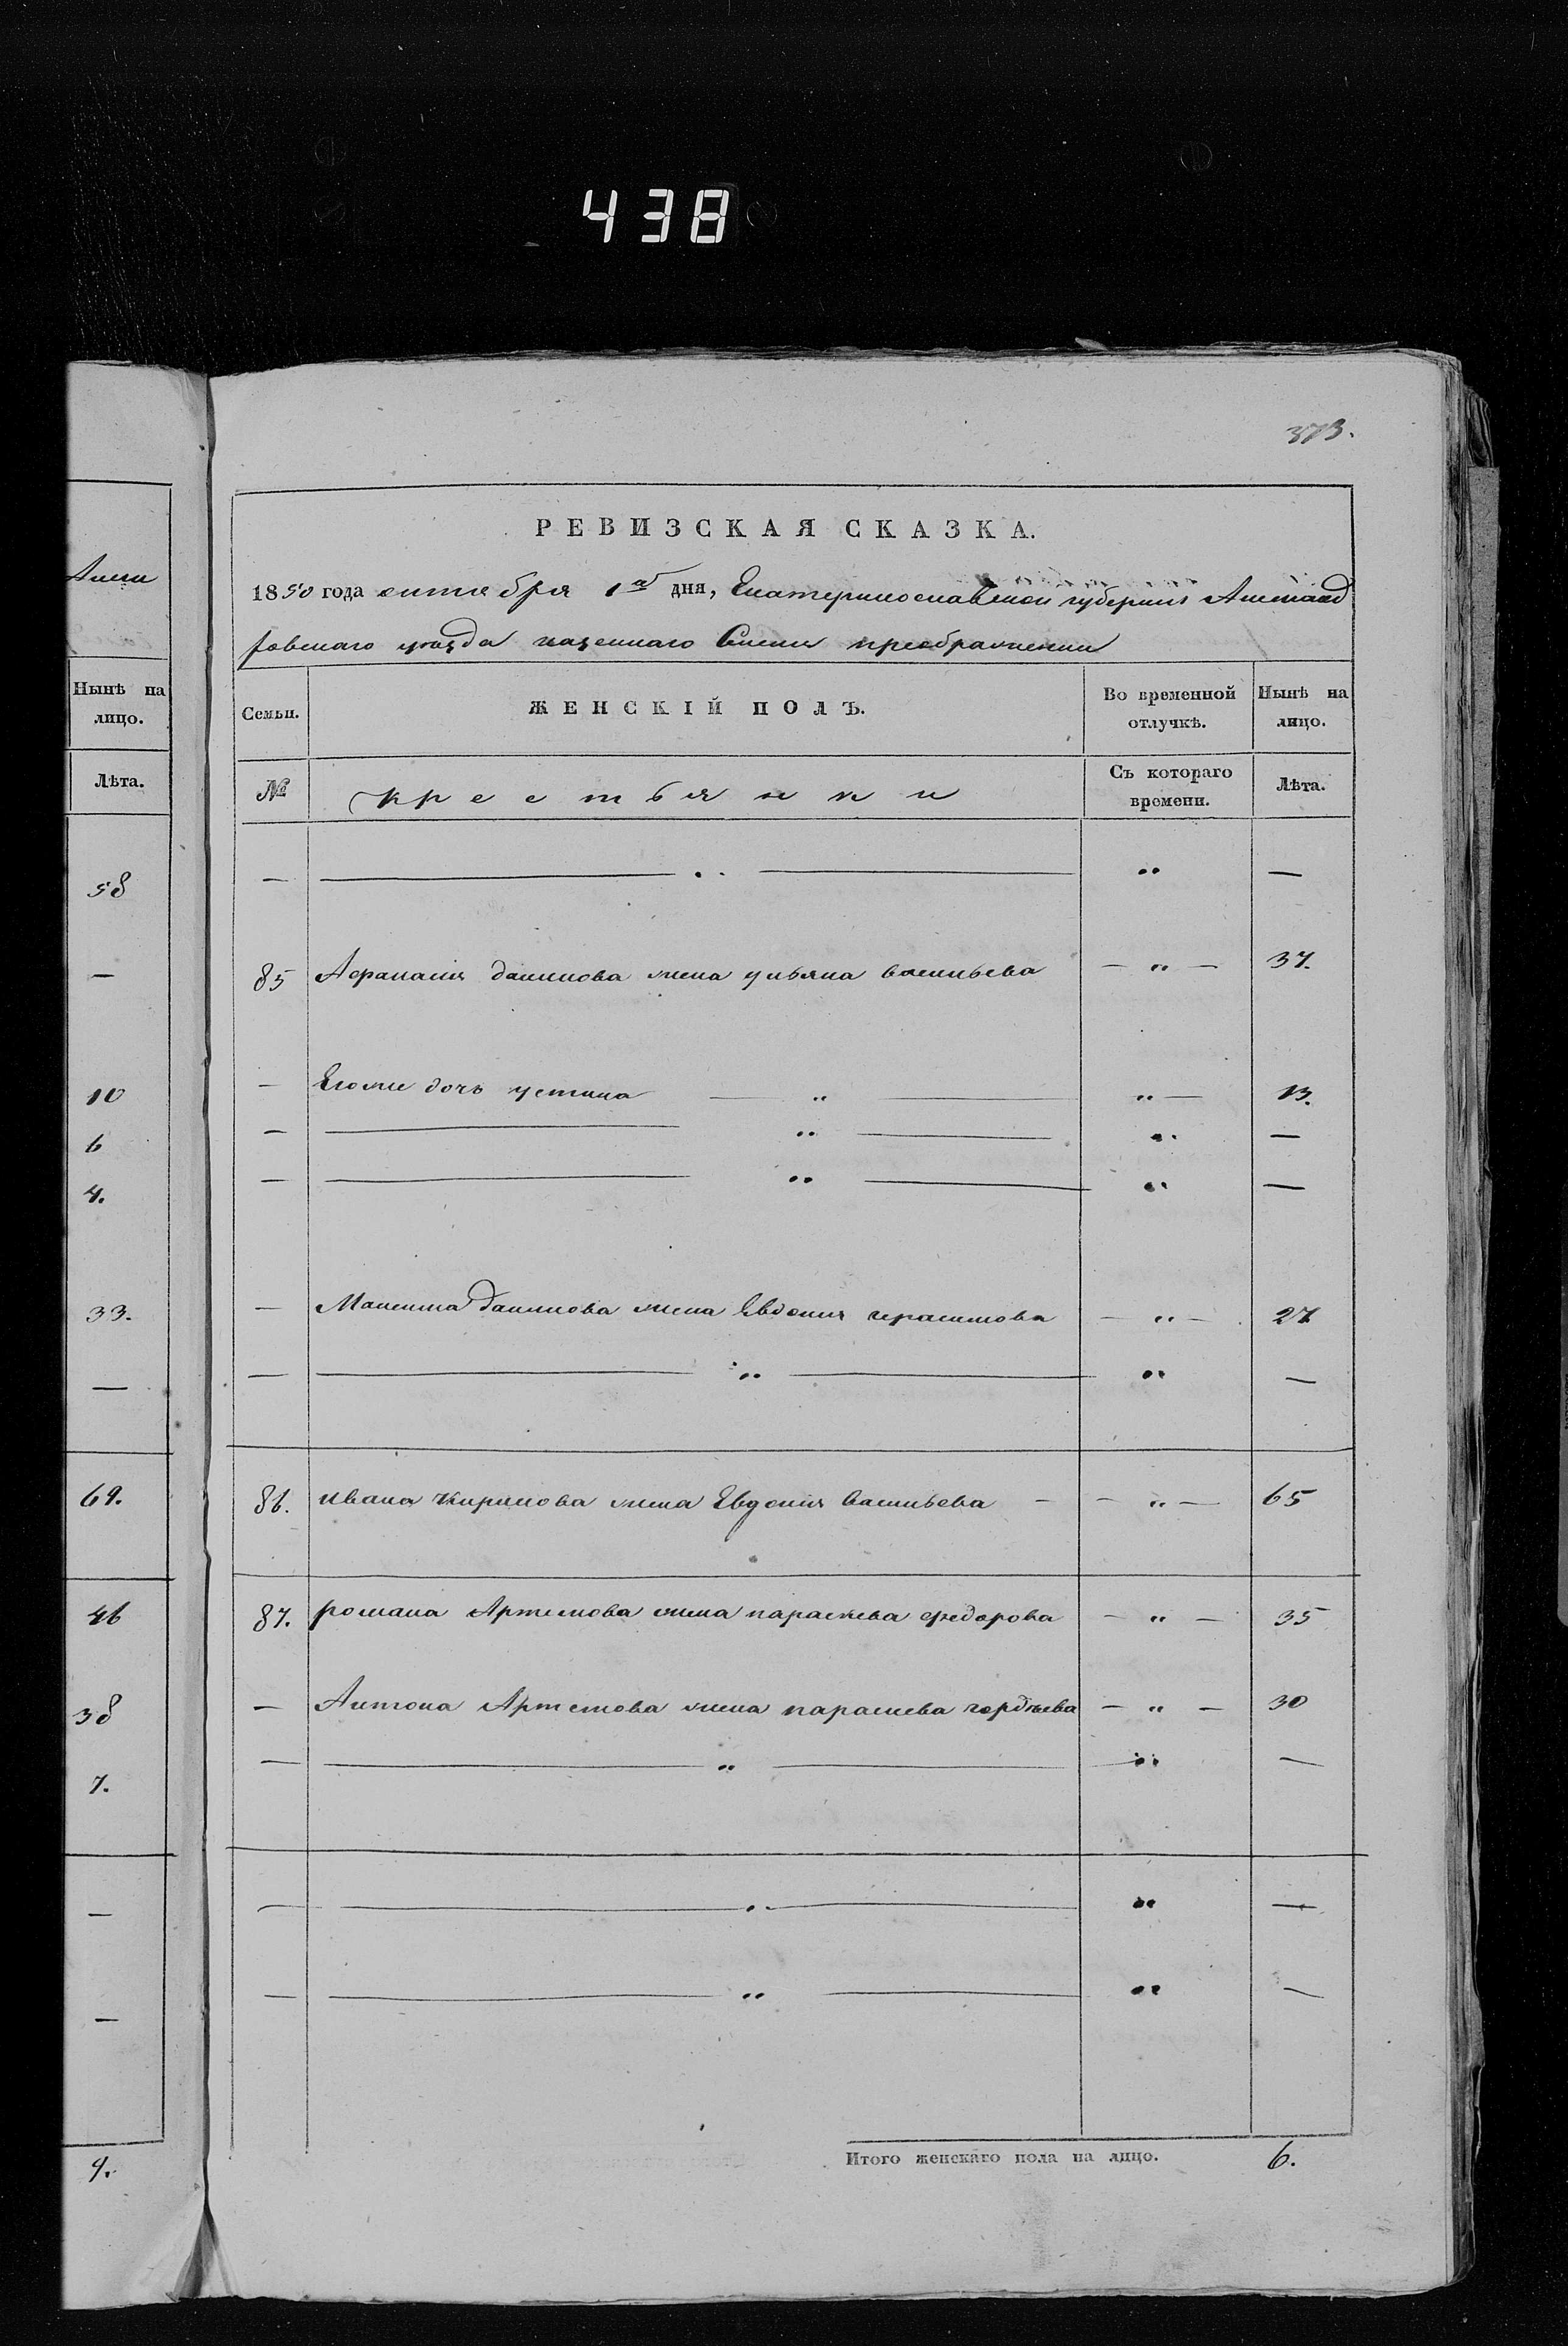 438
373.
Нынѣ на
лицо.
Лѣта.
58
—
10
6
4.
33.
—
69.
46
38
7.
—
—
9.
РЕВИЗСКАЯ СКАЗКА.
1850 года октября 1го дня, Екатеринославской губерніи Александ
ровскаго уѣзда казеннаго Селенія преображенки
Семьи.
ЖЕНСКІЙ ПОЛЪ.
Во временной
отлучкѣ.
Нынѣ на
лицо.
№
крестьянки
Съ котораго
времени.
Лѣта.
— — „ — „ —
85 Афанасія данилова жена ульяна васильева — „ — 37.
— Егоже дочь устина — „ — „ — 13.
— — „ — „ —
— — „ — „ —
— Максима данилова жена Евдокия герасимова — „ — 27
— — „ — „ —
86. ивана кирилова жена Евдокия васильева — — „ — 65
87. романа Артемова жена параскева федорова — „ — 35
— Антона Артемова жена параскева гордѣева — „ — 30
— — „ — „ —
— — „ — „ —
— — „ — „ —
Итого женскаго пола на лицо. 6.